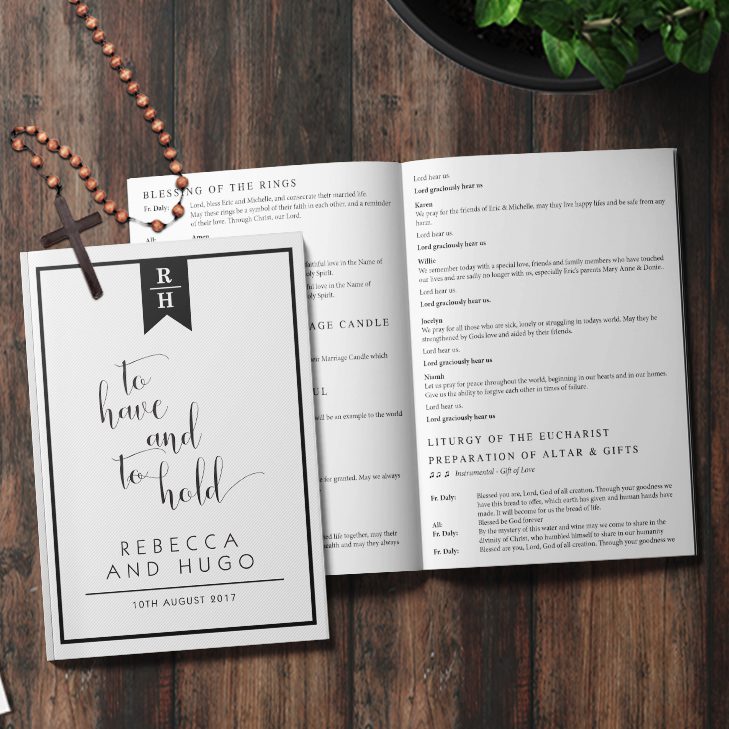 R
H
to
have
and
to
hold
REBECCA
AND HUGO
10TH AUGUST 2017
BLESSING OF THE RINGS
Fr. Daly: Lord, bless Eric and Michelle, and consecrate their married life
May these rings be a symbol of their faith in each other, and a reminder
of their love. Through Christ, our Lord.
All: Amen
faithful love in the Name of
Holy Spirit.
ful love in the Name of
ly Spirit.
AGE CANDLE
their Marriage Candle which
UL
will be an example to the world
for granted. May we always
ed life together, may their
health and may they always
Lord hear us.
Lord graciously hear us
Karen
We pray for the friends of Eric & Michelle, may they live happy lifes and be safe from any
harm.
Lord hear us.
Lord graciously hear us
Willie
We remember today with a special love, friends and family members who have touched
our lives and are sadly no longer with us, especially Eric's parents Mary Anne & Donie..
Lord hear us.
Lord graciously hear us.
Jocelyn
We pray for all those who are sick, lonely or struggling in todays world. May they be
strengthened by Gods love and aided by their friends.
Lord hear us.
Lord graciously hear us
Niamh
Let us pray for peace throughout the world, beginning in our hearts and in our homes.
Give us the ability to forgive each other in times of failure.
Lord hear us.
Lord graciously hear us
LITURGY OF THE EUCHARIST
PREPARATION OF ALTAR & GIFTS
♫♫♫ Instrumental - Gift of Love
Fr. Daly: Blessed you are, Lord, God of all creation. Through your goodness we
have this bread to offer, which earth has given and human hands have
made. It will become for us the bread of life.
All: Blessed be God forever
Fr. Daly: By the mystery of this water and wine may we come to share in the
divinity of Christ, who humbled himself to share in our humanity
Fr. Daly: Blessed are you, Lord, God of all creation. Through your goodness we